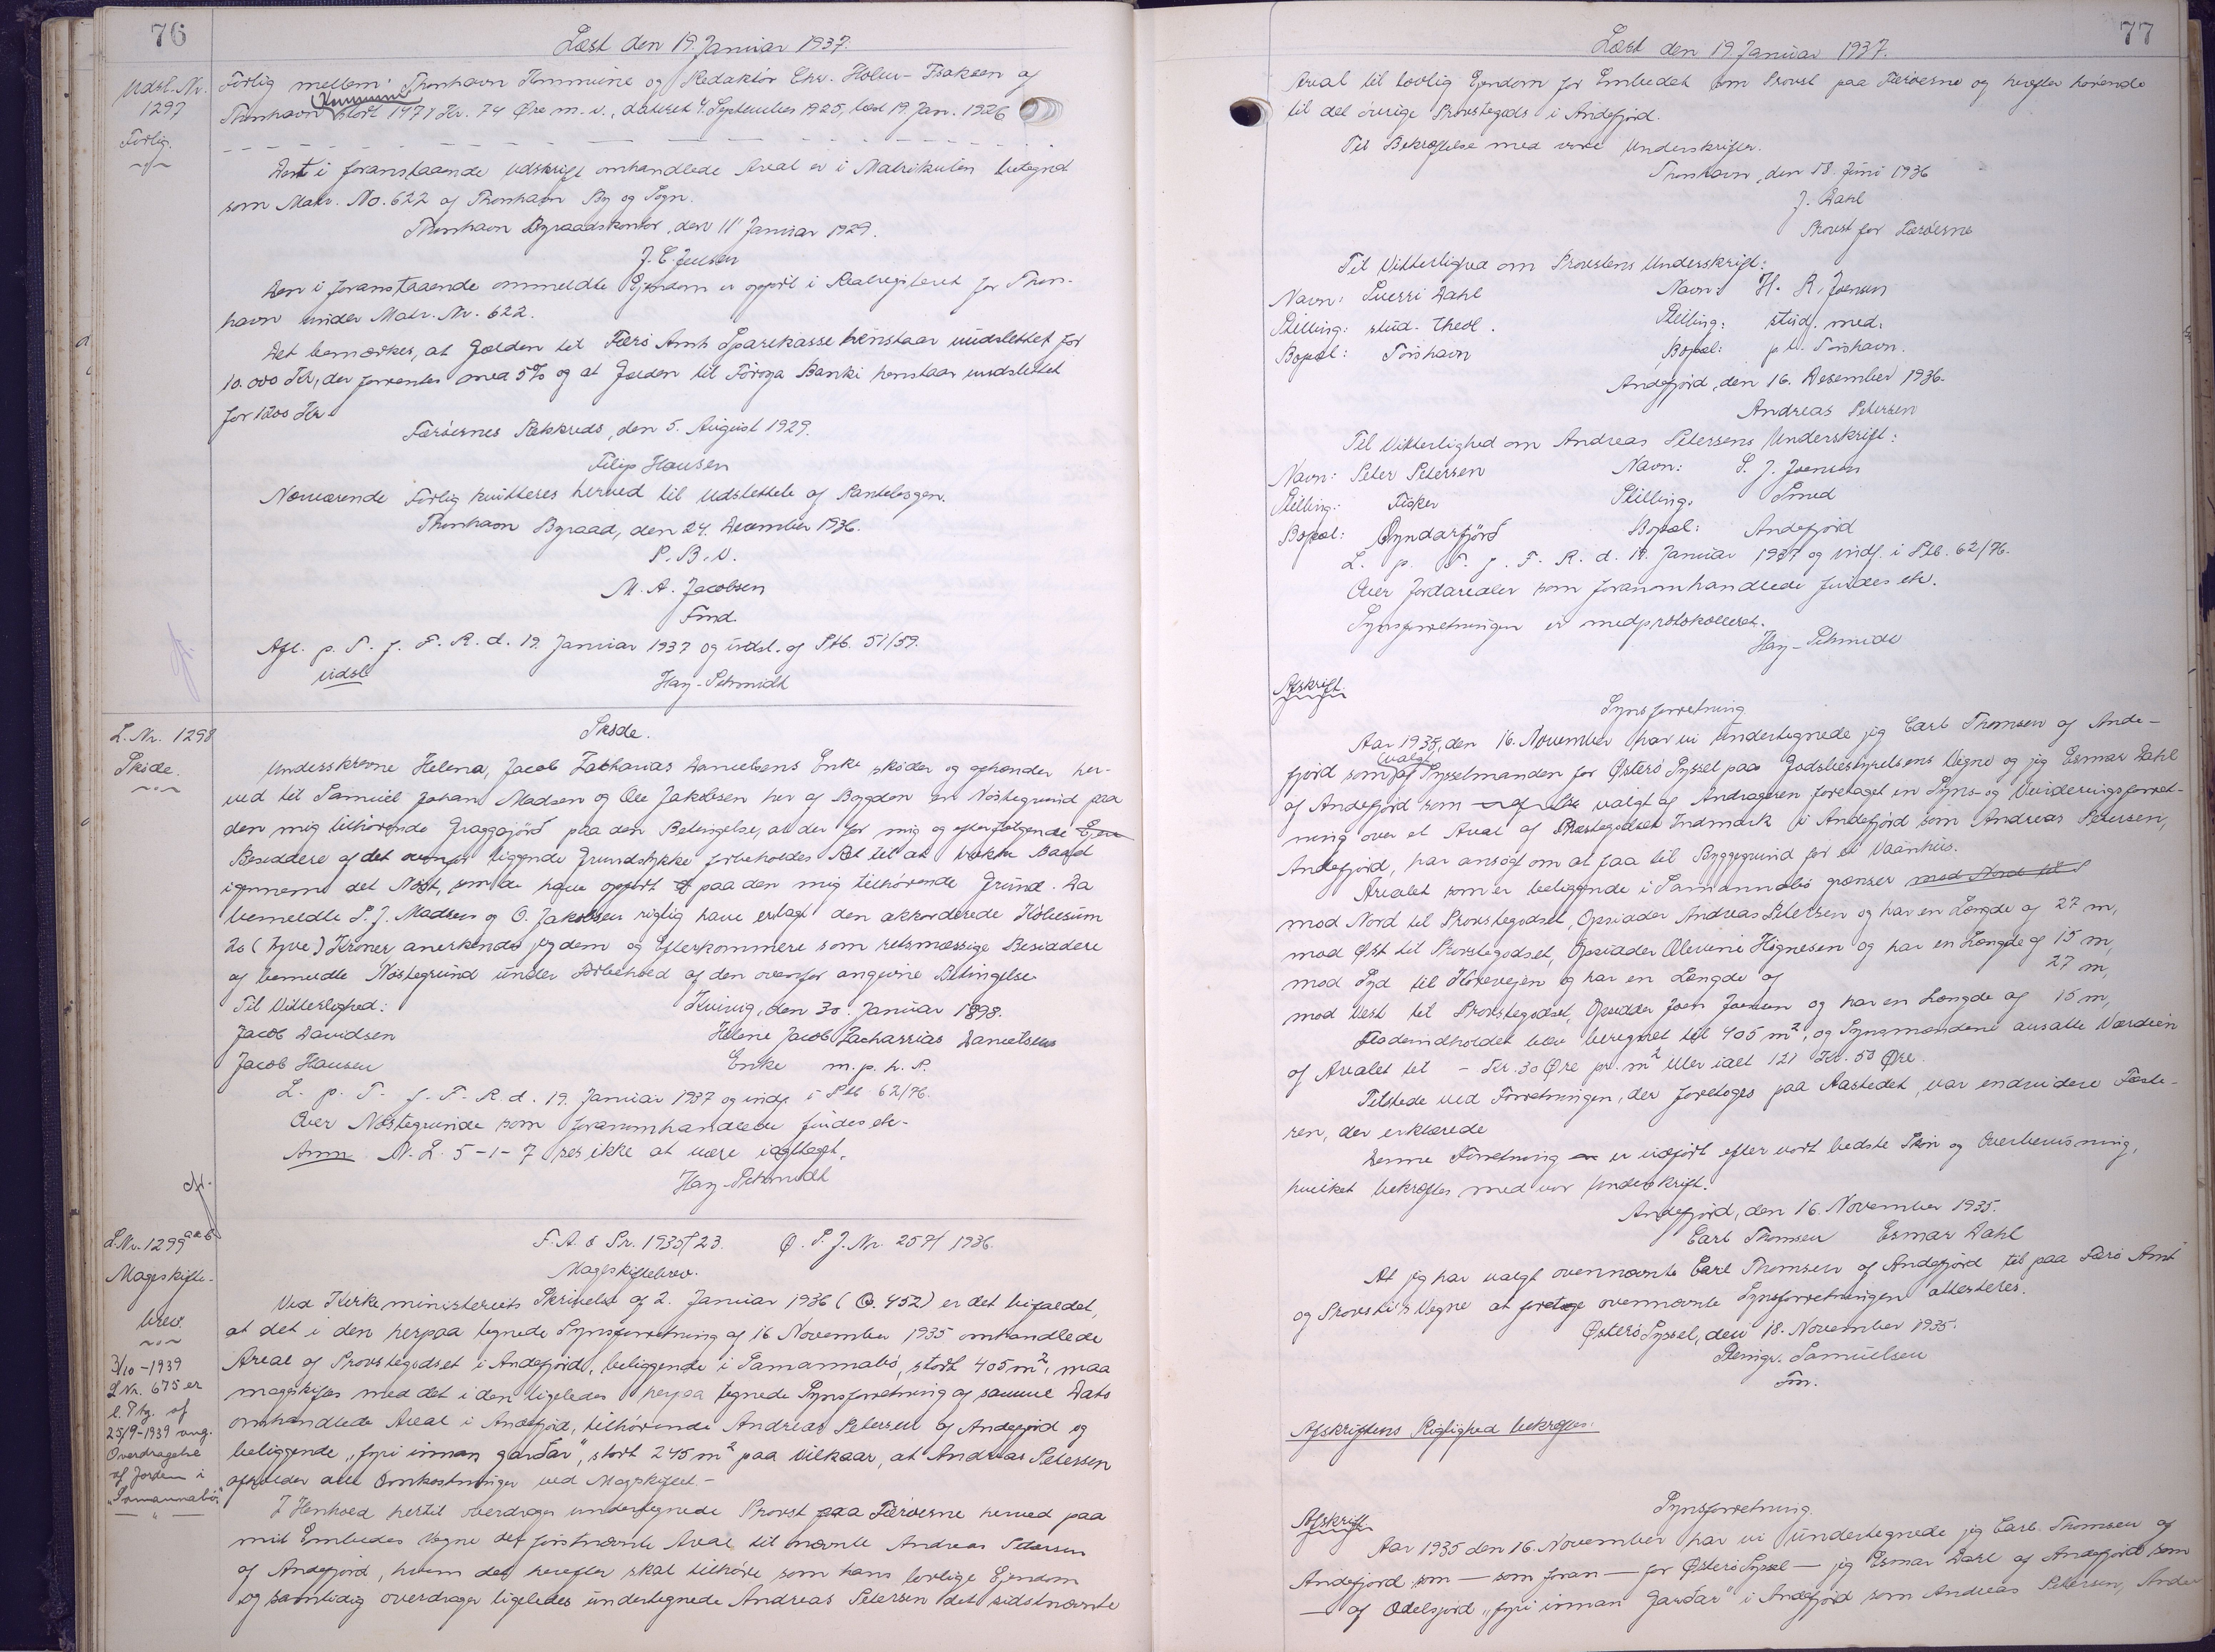 76
Læst den 19. Januar 1937.
Udsl. Nr.
1297
Forlig.
Forlig mellem Thorshavn Kommune og Redaktör Chr. Holm-Isaksen af
Kommune
Thorshavn stort 1471 Kr. 74 Øre m. v., dateret 4. September 1925, læst 19. Jan. 1926
Det i foranstaaende Udskrift omhandlede Areal er i Matrikulen betegnet
som Matr. No. 622 af Thorshavn By og Sogn.
Thorshavn Byraadskontor, den 11 Januar 1929.
J. C. Jensen
Den i foranstaaende ommeldte Ejendom er opført i Realregisteret for Thors-
havn under Matr. Nr. 622.
Det bemærkes, at Gælden til Færö Amts Sparekasse henstaar uudslettet for
10.000 Kr, der forrentes med 5% og at Gælden til Föroya Banki henstaar uudslettet
for 1200 Kr
Færöernes Rekkreds, den 5. August 1929.
Filip Hansen
Nærværende Forlig kvitteres herved til Udslettelse af Pantebogen.
Thorshavn Byraad, den 24. December 1936.
P. B. V.
M. A. Jacobsen
Fmd.
Afl. p. T. f. F. R. d. 19. Januar 1937 og udsl. af Ptb. 51/59.
udsl
Hay-Schmidt
L. Nr. 1298
Sköde.
Sköde.
Underskrevne Helena, Jacob Zacharias Danielsens Enke sköder og afhænder her-
ved til Samuel Johan Madsen og Ole Jakobsen her af Bygden en Nöstegrund paa
den mig tilhörende Graggajörd paa den Betingelse, at der for mig og efterfölgende Ejere
Besiddere af det ovenfor liggende Grundstykke forbeholdes Ret til at trække Baad
igennem det Nöst, som de have opført paa den mig tilhörende Grund. Da
bemeldte S. J. Madsen og O. Jakobsen rigtig have erlagt den akkorderede Köbesum
20 (tyve) Kroner anerkender jeg dem og Efterkommere som retsmæssige Besiddere
af bemeldte Nöstegrund under Forbehold af den ovenfor angivne Betingelse
Til Vitterlighed: Kvivig, den 30. Januar 1898.
Jacob Davidsen Helene Jacob Zacharrias Danielsens
Jacob Hansen Enke m. p. h. P.
L. p. T. f. F. R. d. 19. Januar 1937 og indf i Ptb 62/76.
Over Nöstegrunde som foranomhandlede findes etc.
Anm N. L. 5-1-7 ses ikke at være iagttaget.
Hay-Schmidt
L. Nr. 1299
Mageskifte-
brev
3/10-1939
L Nr. 675 er
l. Thg. af
25/9-1939 ang.
Overdragelse
af Jorden i
"Samannabö"
F. A. & Pr. 1935/23. Ø. S. J. Nr. 257/ 1936.
Mageskiftebrev.
Ved Kirkeministeriets Skrivelse af 2. Januar 1936 (O. 452) er det bifaldet,
at det i den herpaa tegnede Synsforretning af 16 November 1935 omhandlede
Areal af Provstegodset i Andefjörd, beliggende i Samannabö, stort 405 m², maa
mageskiftes med det i den ligeledes herpaa tegnede Synsforretning af samme Dato
omhandlede Areal i Andefjörd, tilhörende Andreas Petersen af Andefjord og
beliggende „fyri innan garðar", stort 245 m² paa Vilkaar, at Andreas Petersen
afholder alle Omkostninger ved Mageskiftet -
I Henhold hertil overdrager undertegnede Provst paa Færöerne herved paa
mit Embedes Vegne det förstnævnte Areal til nævnte Andreas Petersen
af Andefjord, hvem det herefter skal tilhöre som hans lovlige Ejendom
og samtidig overdrager ligeledes undertegnede Andreas Petersen det sidstnævnte
77
Læst den 19. Januar 1937.
Areal til lovlig Ejendom for Embedet som Provst paa Færöerne og herefter hörende
til det övrige Provstegods i Andefjörd.
Til Bekræftelse med vore Underskrifter.
Thorshavn, den 18. Juni 1936
J. Dahl
Provst for Færöerne
Til Vitterlighed om Provstens Underskrift:
Navn: Sverri Dahl Navn: H. R. Joensen
Stilling: stud. theol. Stilling: stud. med.
Bopæl: Torshavn Bopæl: p. t. Torshavn.
Andefjörd, den 16. Desember 1936.
Andreas Petersen
Til Vitterlighed om Andreas Petersens Underskrift:
Navn: Peter Petersen Navn: S. J. Joensen
Stilling: Fisker Stilling: Smed
Bopæl: Oyndarfjörð Bopæl: Andefjörd
L. p. T. f. F. R. d. 19. Januar 1937 og indf. i Ptb. 62/76.
Over Jordarealer som foranomhandlede findes etc.
Synsforretningen er medprotokolleret.
Hay-Schmidt
Afskrift.
Synsforretning
Aar 1935, den 16. November har vi undertegnede jeg Carl Thomsen af Ande-
valgt
fjord som af Sysselmanden for Østerö Syssel paa Godsbestyrelsens Vegne og jeg Esmar Dahl
af Andefjord som valgt af Andrageren foretaget en Syns- og Vurderingsforret-
ning over et Areal af Præstegodset Indmark i Andefjörd som Andreas Petersen,
Andefjord, har ansøgt om at faa til Byggegrund for et Vaanhus.
Arealet som er beliggende i Samannabö grænser mod Nord til P
mod Nord til Provstegodset, Opsidder Andreas Petersen og har en Længde af 27 m,
mod Øst til Provstegodset, Opsidder Olevine Högnesen og har en Længde af 15 m,
mod Syd til Körevejen og har en Længde af 27 m,
mod Vest til Provstegodset, Opsidder Joen Joensen og har en Længde af 15 m,
Fladeindholdet blev beregnet til 405 m², og Synsmændene ansatte Værdien
af Arealet til - Kr. 30 Øre pr. m² eller ialt 121 Kr. 50 Øre.
Tilstede ved Forretningen, der foretoges paa Aastedet, var endvidere Fæste-
ren, der erklærede
Denne Forretning er udført efter vort bedste Skön og Overbevisning,
hvilket bekræftes med vor Underskrift.
Andefjörd, den 16. November 1935.
Carl Thomsen Esmar Dahl
At jeg har valgt ovennævnte Carl Thomsen af Andefjörd til paa Færö Amt
og Provsti's Vegne at foretage ovennævnte Synsforretningen attesteres.
Østerö Syssel, den 18. November 1935.
Steingr. Samuelsen
Fm.
Afskriftens Rigtighed bekræftes:
Afskrift
Synsforretning.
Aar 1935 den 16. November har vi undertegnede jeg Carl Thomsen af
Andefjord som — som foran — for Østerö Syssel — jeg Esmar Dahl af Andefjord som
— af Odelsjord „fyri innan Garðar" i Andefjord som Andreas Petersen, Ande